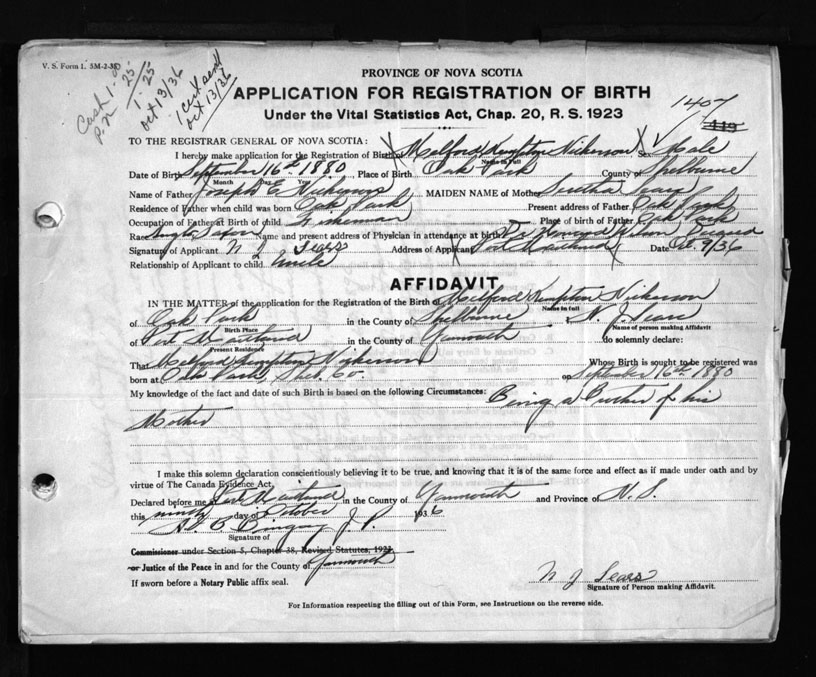 V. S. Form 1. 5M-2-35
Cash 1.25
P.N.
1.25
Oct 13/36
1 cert sent
Oct 13/36
PROVINCE OF NOVA SCOTIA
APPLICATION FOR REGISTRATION OF BIRTH
Under the Vital Statistics Act, Chap. 20, R. S. 1923
1407
TO THE REGISTRAR GENERAL OF NOVA SCOTIA:
I hereby make application for the Registration of Birth of Milford Kempton Nickerson Sex Male
Name in Full
Date of Birth September 16th 1880, Place of Birth Oak Park County of Shelburne
Month Date Year
Name of Father Joseph Nickerson MAIDEN NAME of Mother Sears
Residence of Father when child was born Oak Park Present address of Father Oak Park
Occupation of Father at Birth of child Fisherman Place of birth of Father Oak Park
Race Anglo Saxon Name and present address of Physician in attendance at birth Dr. Wilson, Deceased
Signature of Applicant N J Sears Address of Applicant Port Maitland Date Oct. 9/36
Relationship of Applicant to child Uncle
AFFIDAVIT
IN THE MATTER of the application for the Registration of the Birth of Milford Kempton Nickerson
Name in full
of Oak Park in the County of Shelburne, N. J. Sears
Birth Place Name of person making Affidavit
of Port Maitland in the County of Yarmouth do solemnly declare:
Present Residence
That Milford Kempton Nickerson Whose Birth is sought to be registered was
born at Oak Park, Shel. Co. on September 16th 1880
My knowledge of the fact and date of such Birth is based on the following Circumstances: Being a Brother of his
Mother
I make this solemn declaration conscientiously believing it to be true, and knowing that it is of the same force and effect as if made under oath and by
virtue of The Canada Evidence Act,
Declared before me at Port Maitland in the County of Yarmouth and Province of N. S.
this ninth day of October 1936
Bingay J. P.
Signature of
Commissioner under Section 5, Chapter 38, Revised Statutes, 1923
or Justice of the Peace in and for the County of Yarmouth
If sworn before a Notary Public affix seal.
N J Sears
Signature of Person making Affidavit.
For Information respecting the filling out of this Form, see Instructions on the reverse side.